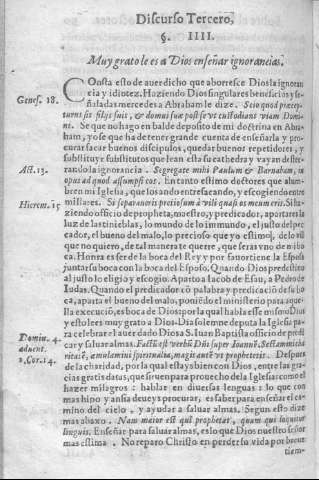 Discurso Tercero,
§. IIII.
Muy grato le es a Dios enseñar ignorancias.
COnsta esto de auer dicho que aborresce Dios la ignoran
cia y idiotez. Haziendo Dios singulares beneficios y se-
Genes. 18.
ñaladas mercedes a Abraham le dize. Scio quod præcep-
turus sis filijs suis, & domui suæ post se vt custodiant viam Domi-
ni. Se que no hago en balde deposito de mi doctrina en Abra-
ham, y ose que ha de tener grande cuenta de enseñarla y pro-
curar sacar buenos discipulos, quedar buenos repetidores, y
substituyr substitutos que lean esta su cathedra y vayan deste-
Act. 13.
rando la ignorancia. Segregate mihi Paulum & Barnabam, in
opus ad quod assumpsi eos. En tanto estimo doctores que alum-
bren mi Iglesia, que los ando entresacando, y escogiendo entre
Hierem. 15
millares. Si separaueris pretiosum à vili quasi os meum eris. Si ha-
ziendo officio de propheta, maestro, y predicador, apartares la
luz de las tinieblas, lo mundo de lo immundo, el justo del pec-
cador, el bueno del malo, lo precioso que yo estimo, de lo vil
que no quiero, de tal manera te querre, que seras vno de mi bo
ca. Honra es ser de la boca del Rey y por fauor tiene la Esposa
juntar su boca con la boca del Esposo. Quando Dios predestino
al justo lo eligio y escogio. Aparto a Iacob de Esau, a Pedro de
Iudas. Quando el predicador cō palabra y predicaciō de su bo
ca, aparta el bueno del malo, poniēdo el ministerio para aque-
lla execuciō, es boca de Dios: por la qual habla esse mismo Dios
y estos les muy grato a Dios. Dia solemne deputa la Iglesia pa-
Domin. 4.
ra celebrar el auer dado Dios a S. Iuan Baptista officio de predi
aduent.
car y saluar almas. Factū est verbū Dñi super Ioannē. Sectamini cha
1. Cor. 14.
ritatē, æmulamini spiritualia, magis autē vt prophetetis. Despues
de la charidad, por la qual esta y bien con Dios, entre las gra-
cias gratis datas, que siruen para prouecho de la Iglesia: como el
hazer milagros: hablar en diuersas lenguas: lo que con
mas hipo y ansia deueys procurar, es saber para enseñar el ca-
mino del cielo, y ayudar a saluar almas. Segun esto dize
mas abaxo. Nam maior est qui prophetat, quam qui loquitur
linguis. Enseñar para saluar almas, es lo que Dios nuestro señor
mas estima. No reparo Christo en perder su vida por breue
tiem-